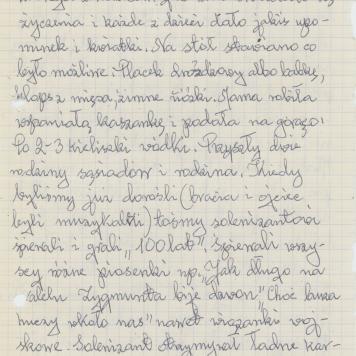 życzenia i każde z dzieci dało jakiś upo-
minek i kwiatki. Na stół stawiano co
było możliwe: Placek drożdżowy albo babkę,
klops z mięsa, zimne nóżki. Mama robiła
wspaniałą kaszankę i podała na gorąco.
Po 2-3 kieliszki wódki. Przyszły dwie
rodziny sąsiadów i rodzina. Kiedy
byliśmy już dorośli (bracia i ojciec
byli muzykalni) tośmy solenizantowi
śpiewali i grali "100 lat" śpiewali wszy-
scy różne piosenki np. "Jak długo na
Wawelu Zygmunta bije dzwon" "Choć burza
huczy wkoło nas" nawet wiązanki woj-
skowe. Solenizant otrzymywał ładne kar-